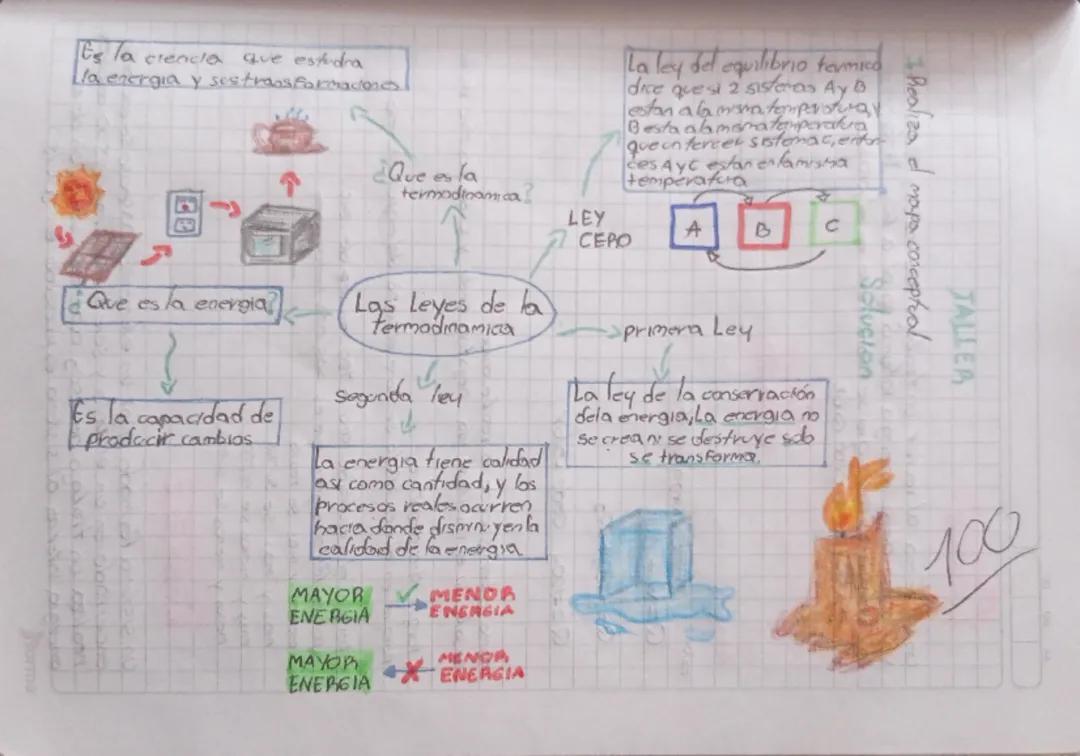 TALLER
1 Realiza el mapa conceptual
Solución
Es la ciencia que estudia
la energia y sus transformaciones
¿Que es la
termodinamica?
La ley del equilibrio termico
dice que si 2 sistemas A y B
estan a la misma temperatura, y
B esta a la misma temperatura
que un tercer sistema C, enton-
ces A y C estan en la misma
temperatura
LEY
CERO
A
B
C
¿Que es la energia?
Las Leyes de la
termodinamica
primera Ley
Es la capacidad de
producir cambios
Segunda ley
La ley de la conservación
dela energia, La energia no
se crea ni se destruye solo
se transforma.
La energia tiene calidad
asi como cantidad, y los
procesos reales ocurren
hacia donde disminuyen la
calidad de la energia
MAYOR
ENERGIA
MENOR
ENERGIA
MAYOR
ENERGIA
MENOR
ENERGIA
100